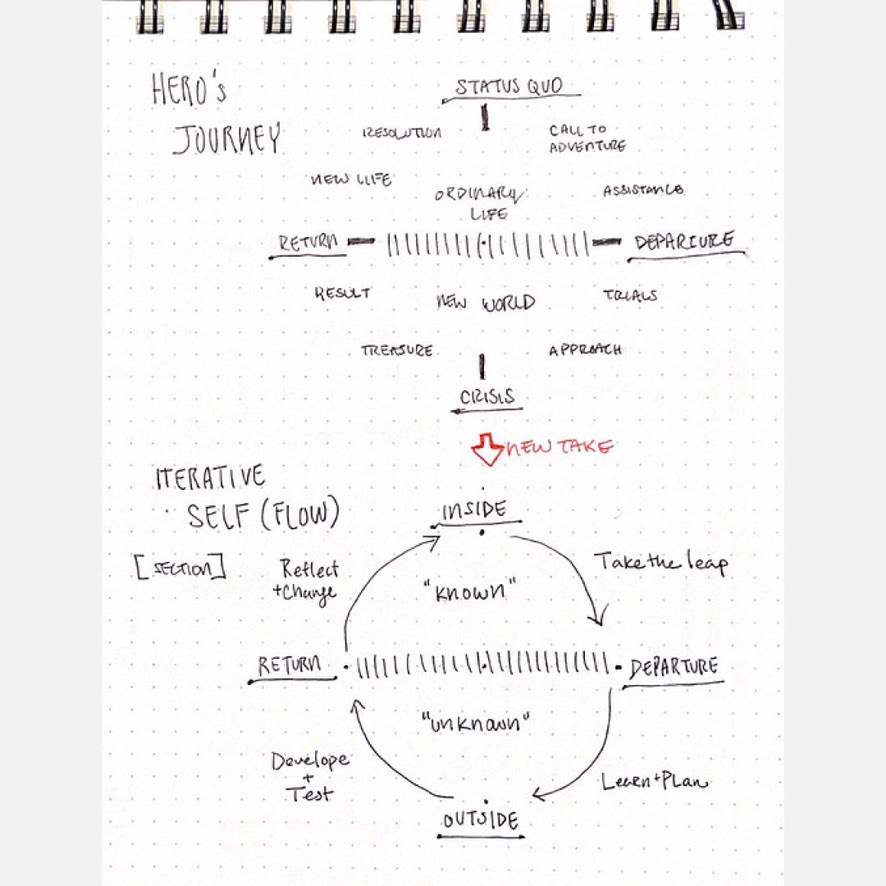 HERO's
JOURNEY
STATUS QUO
RESOLUTION
CALL TO
ADVENTURE
NEW LIFE
ORDINARY
LIFE
ASSISTANCE
RETURN
DEPARTURE
RESULT
NEW WORLD
TRIALS
TREASURE
APPROACH
CRISIS
NEW TAKE
ITERATIVE
SELF (FLOW)
[SECTION]
INSIDE
Reflect
+Change
"known"
Take the leap
RETURN
DEPARTURE
"unknown"
Develope
+
Test
Learn+Plan
OUTSIDE